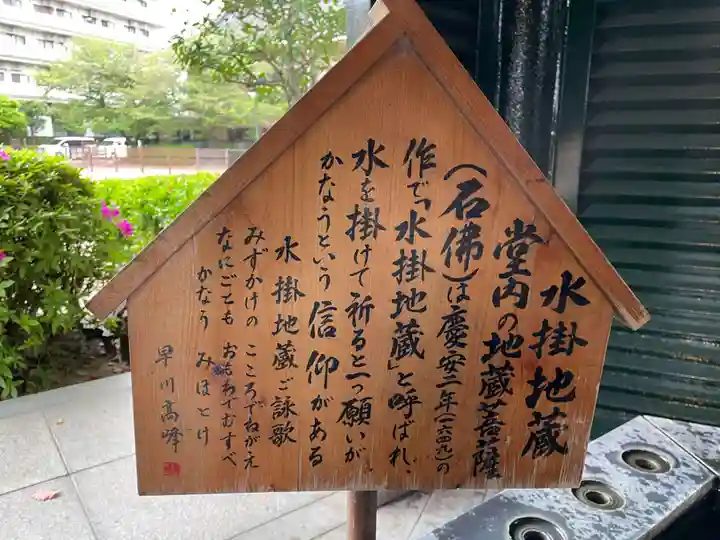 水掛地蔵
堂内の地蔵菩薩
(石佛)は慶安二年(一六四九)の
作で「水掛地蔵」と呼ばれ、
水を掛けて祈ると一つ願いが、
かなうという信仰がある
水掛地蔵ご詠歌
みずかけの こころでねがえ
なにごとも おもわでむすべ
かなう みほとけ
早川高峰